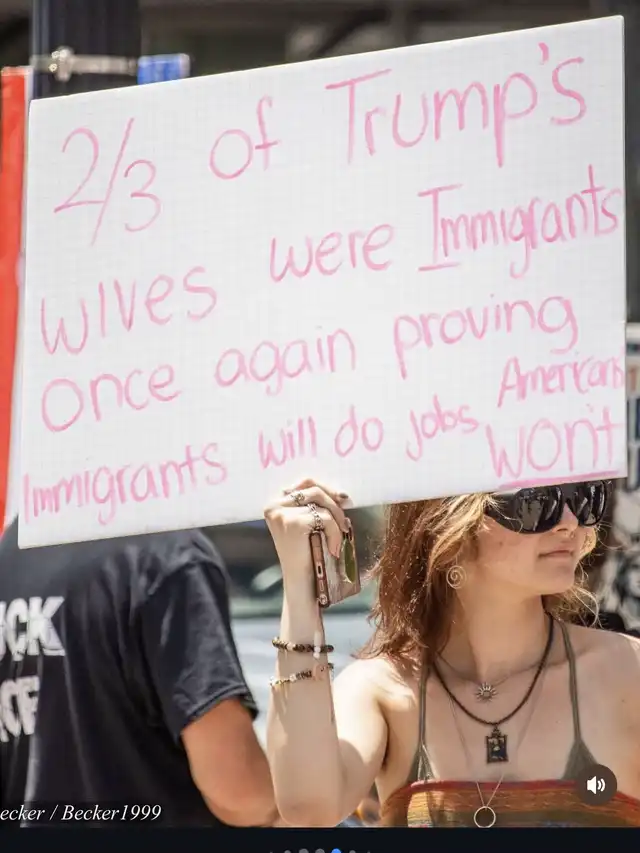 2/3 of Trump's
wives were Immigrants
once again proving
Immigrants will do jobs Americans
won't
UCK
ecker / Becker1999